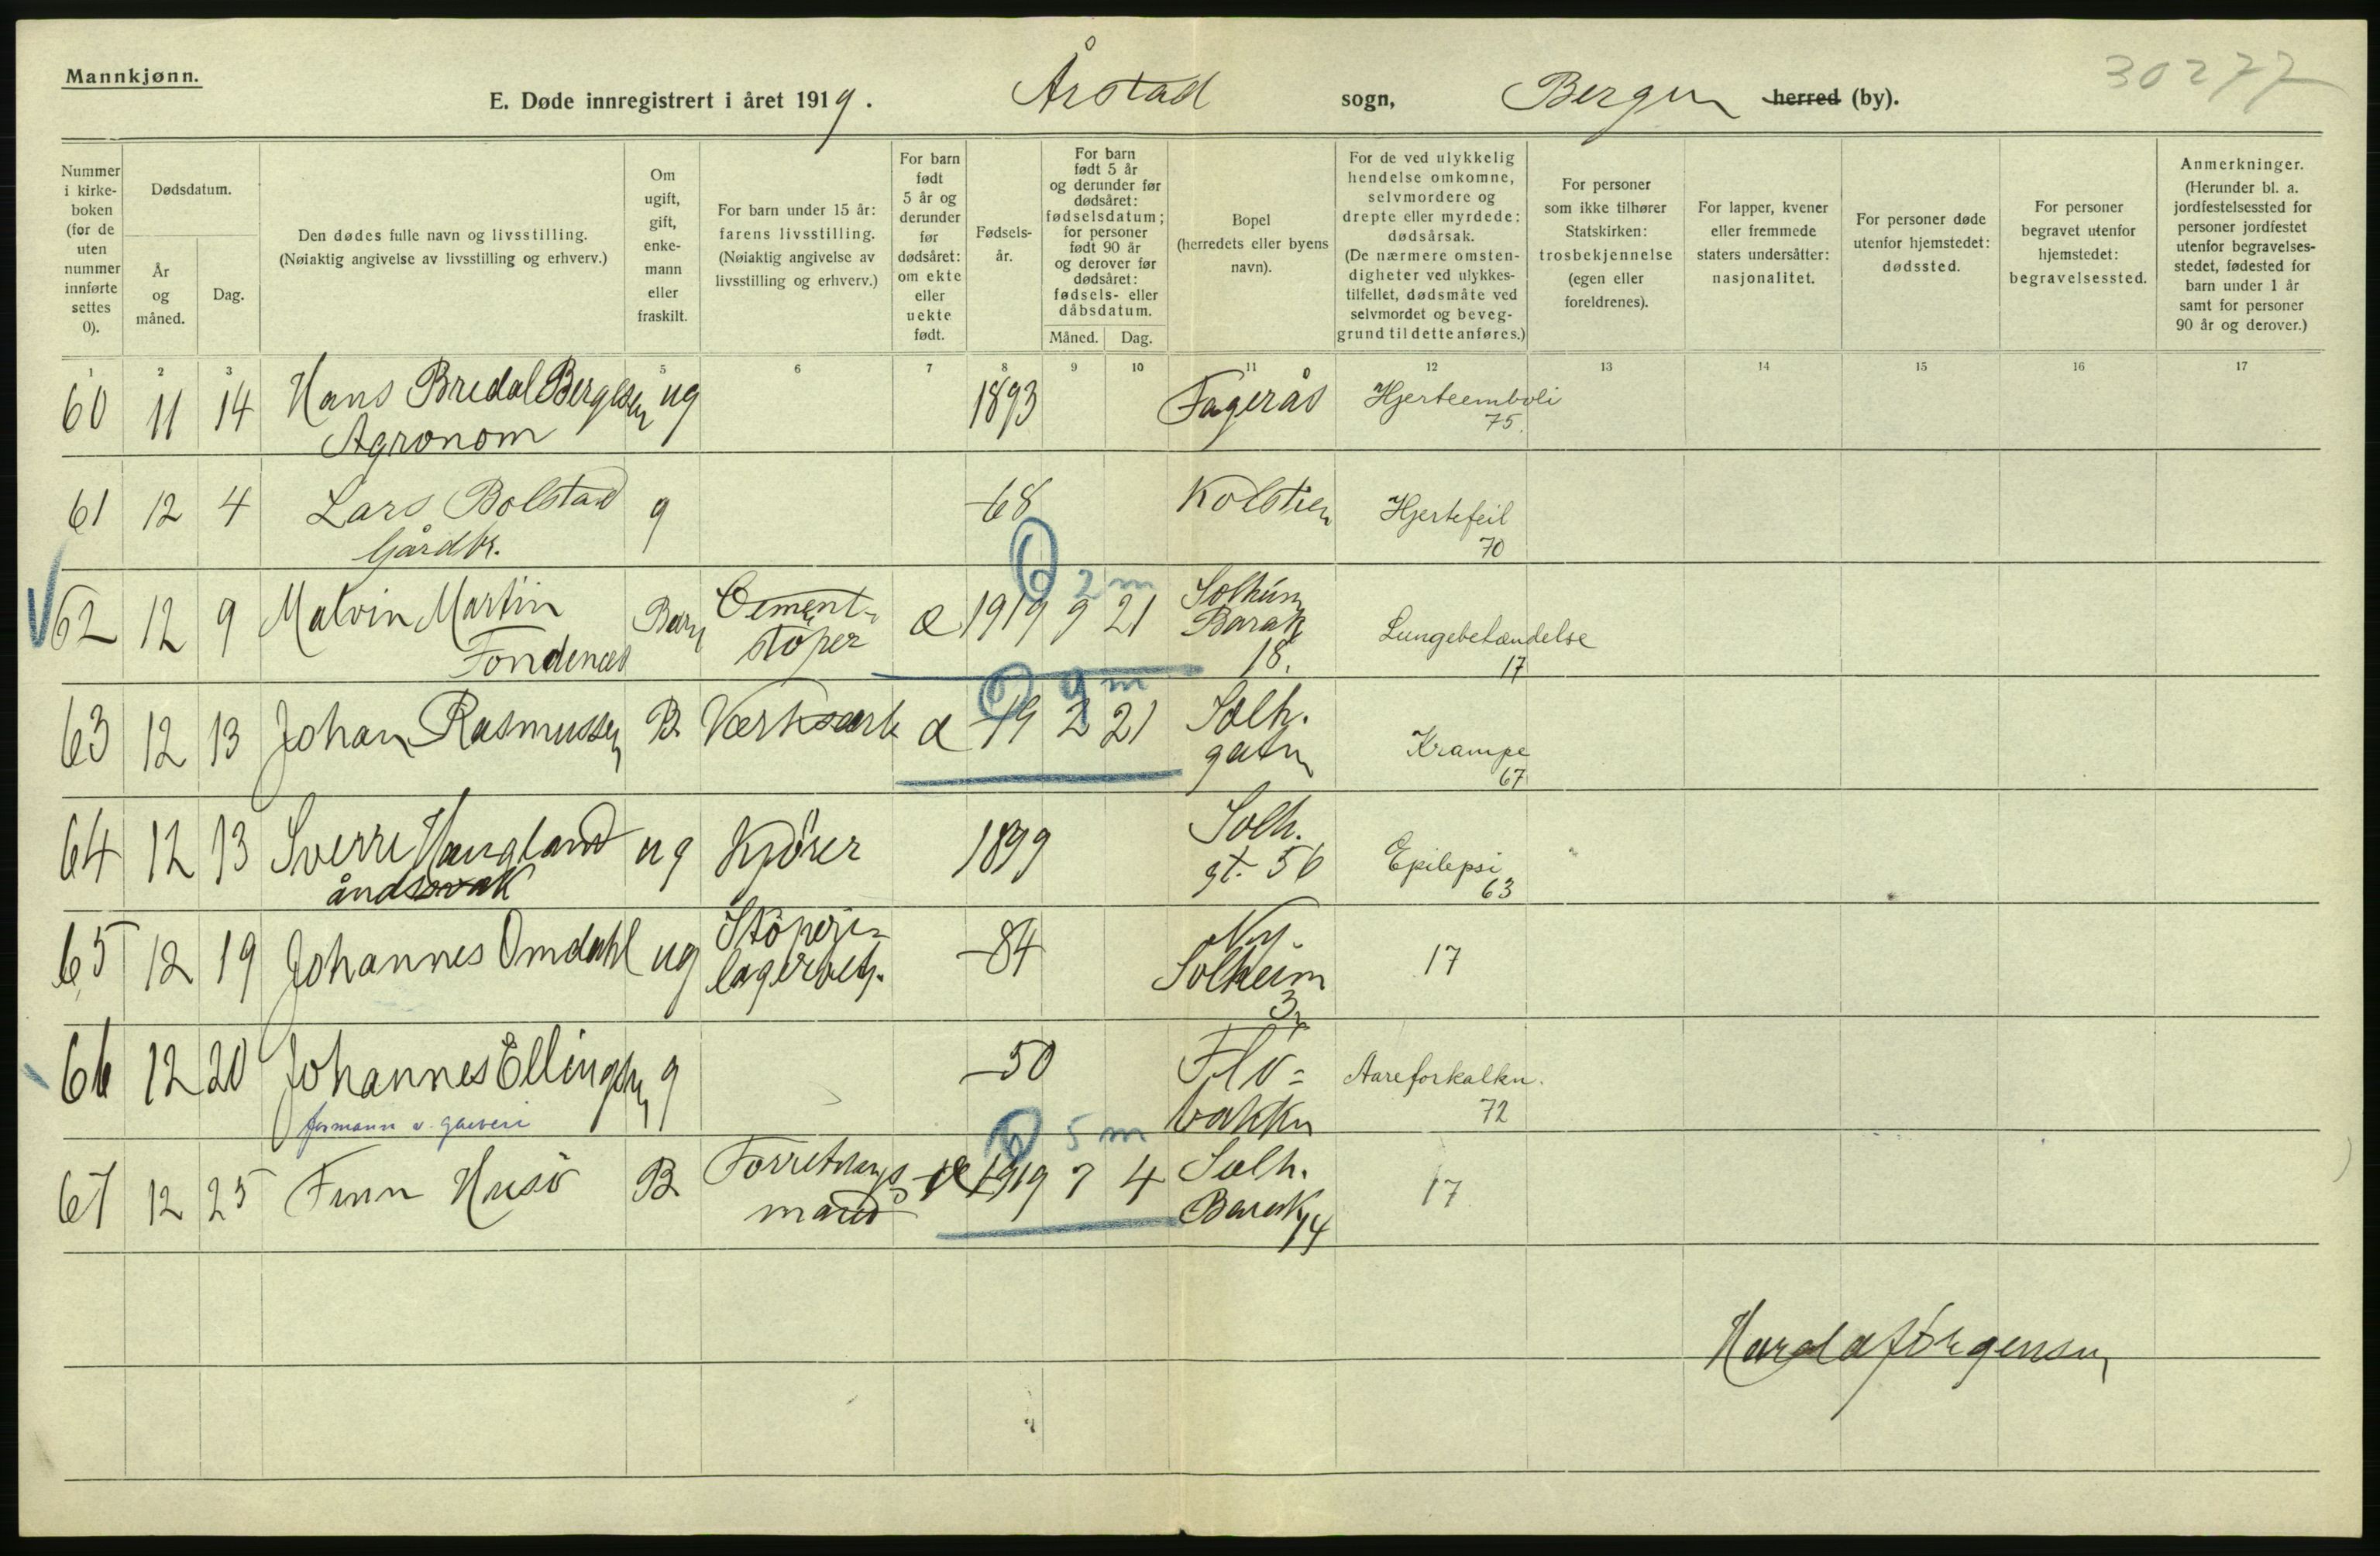 Mannkjønn.
30277
E. Døde innregistrert i året 1919. Årstad sogn, Bergen herred (by).
Nummer i kirke- boken (for de uten nummer innførte settes 0).
Dødsdatum.
År og måned.
Dag.
Den dødes fulle navn og livsstilling.
(Nøiaktig angivelse av livsstilling og erhverv.)
Om ugift, gift, enke- mann eller fraskilt.
For barn under 15 år: farens livsstilling.
(Nøiaktig angivelse av livsstilling og erhverv.)
For barn født 5 år og derunder før dødsåret: om ekte eller uekte født.
Fødsels- år.
For barn født 5 år og derunder før dødsåret: fødselsdatum; for personer født 90 år og derover før dødsåret: fødsels- eller dåbsdatum.
Måned. Dag.
Bopel (herredets eller byens navn).
For de ved ulykkelig hendelse omkomne, selvmordere og drepte eller myrdede: dødsårsak.
(De nærmere omsten- digheter ved ulykkes- tilfellet, dødsmåte ved selvmordet og beveg- grund til dette anføres.)
For personer som ikke tilhører Statskirken: trosbekjennelse (egen eller foreldrenes).
For lapper, kvener eller fremmede staters undersåtter: nasjonalitet.
For personer døde utenfor hjemstedet: dødssted.
For personer begravet utenfor hjemstedet: begravelsessted.
Anmerkninger.
(Herunder bl. a. jordfestelsessted for personer jordfestet utenfor begravelses- stedet, fødested for barn under 1 år samt for personer 90 år og derover.)
1 2 3 5 6 7 8 9 10 11 12 13 14 15 16 17
60 11 14 Hans Bredal Bergesen ug 1893 Fagerås Hjerteemboli
Agronom 75.
61 12 4 Lars Bolstad g -68 Kolstien Hjertefeil
Gårdbr. 70
0 2 m
62 12 9 Malvin Martin Barn Cement- æ 1919 9 21 Solheim
Fondenes støper Barak 18. Lungebetændelse
17
0 9 m
63 12 13 Johan Rasmussen B. Værksarb æ -19 2 21 Solh.
gaten Krampe
67
64 12 13 Sverre Haugland ug Kjører 1899 Solh.
åndssvak gt. 56 Epilepsi
63
65 12 19 Johannes Omdahl ug Støperi= -84 Ny.
lagerbetj. Solheim 17
3
66 12 20 Johannes Ellingsen g -50 Flö= Aareforkalkn.
formann v. garveri bakken 72
0 5 m
67 12 25 Finn Husø B Forretnings æ 1919 7 4 Solh.
mand Barak 14 17
Harald Jørgensen